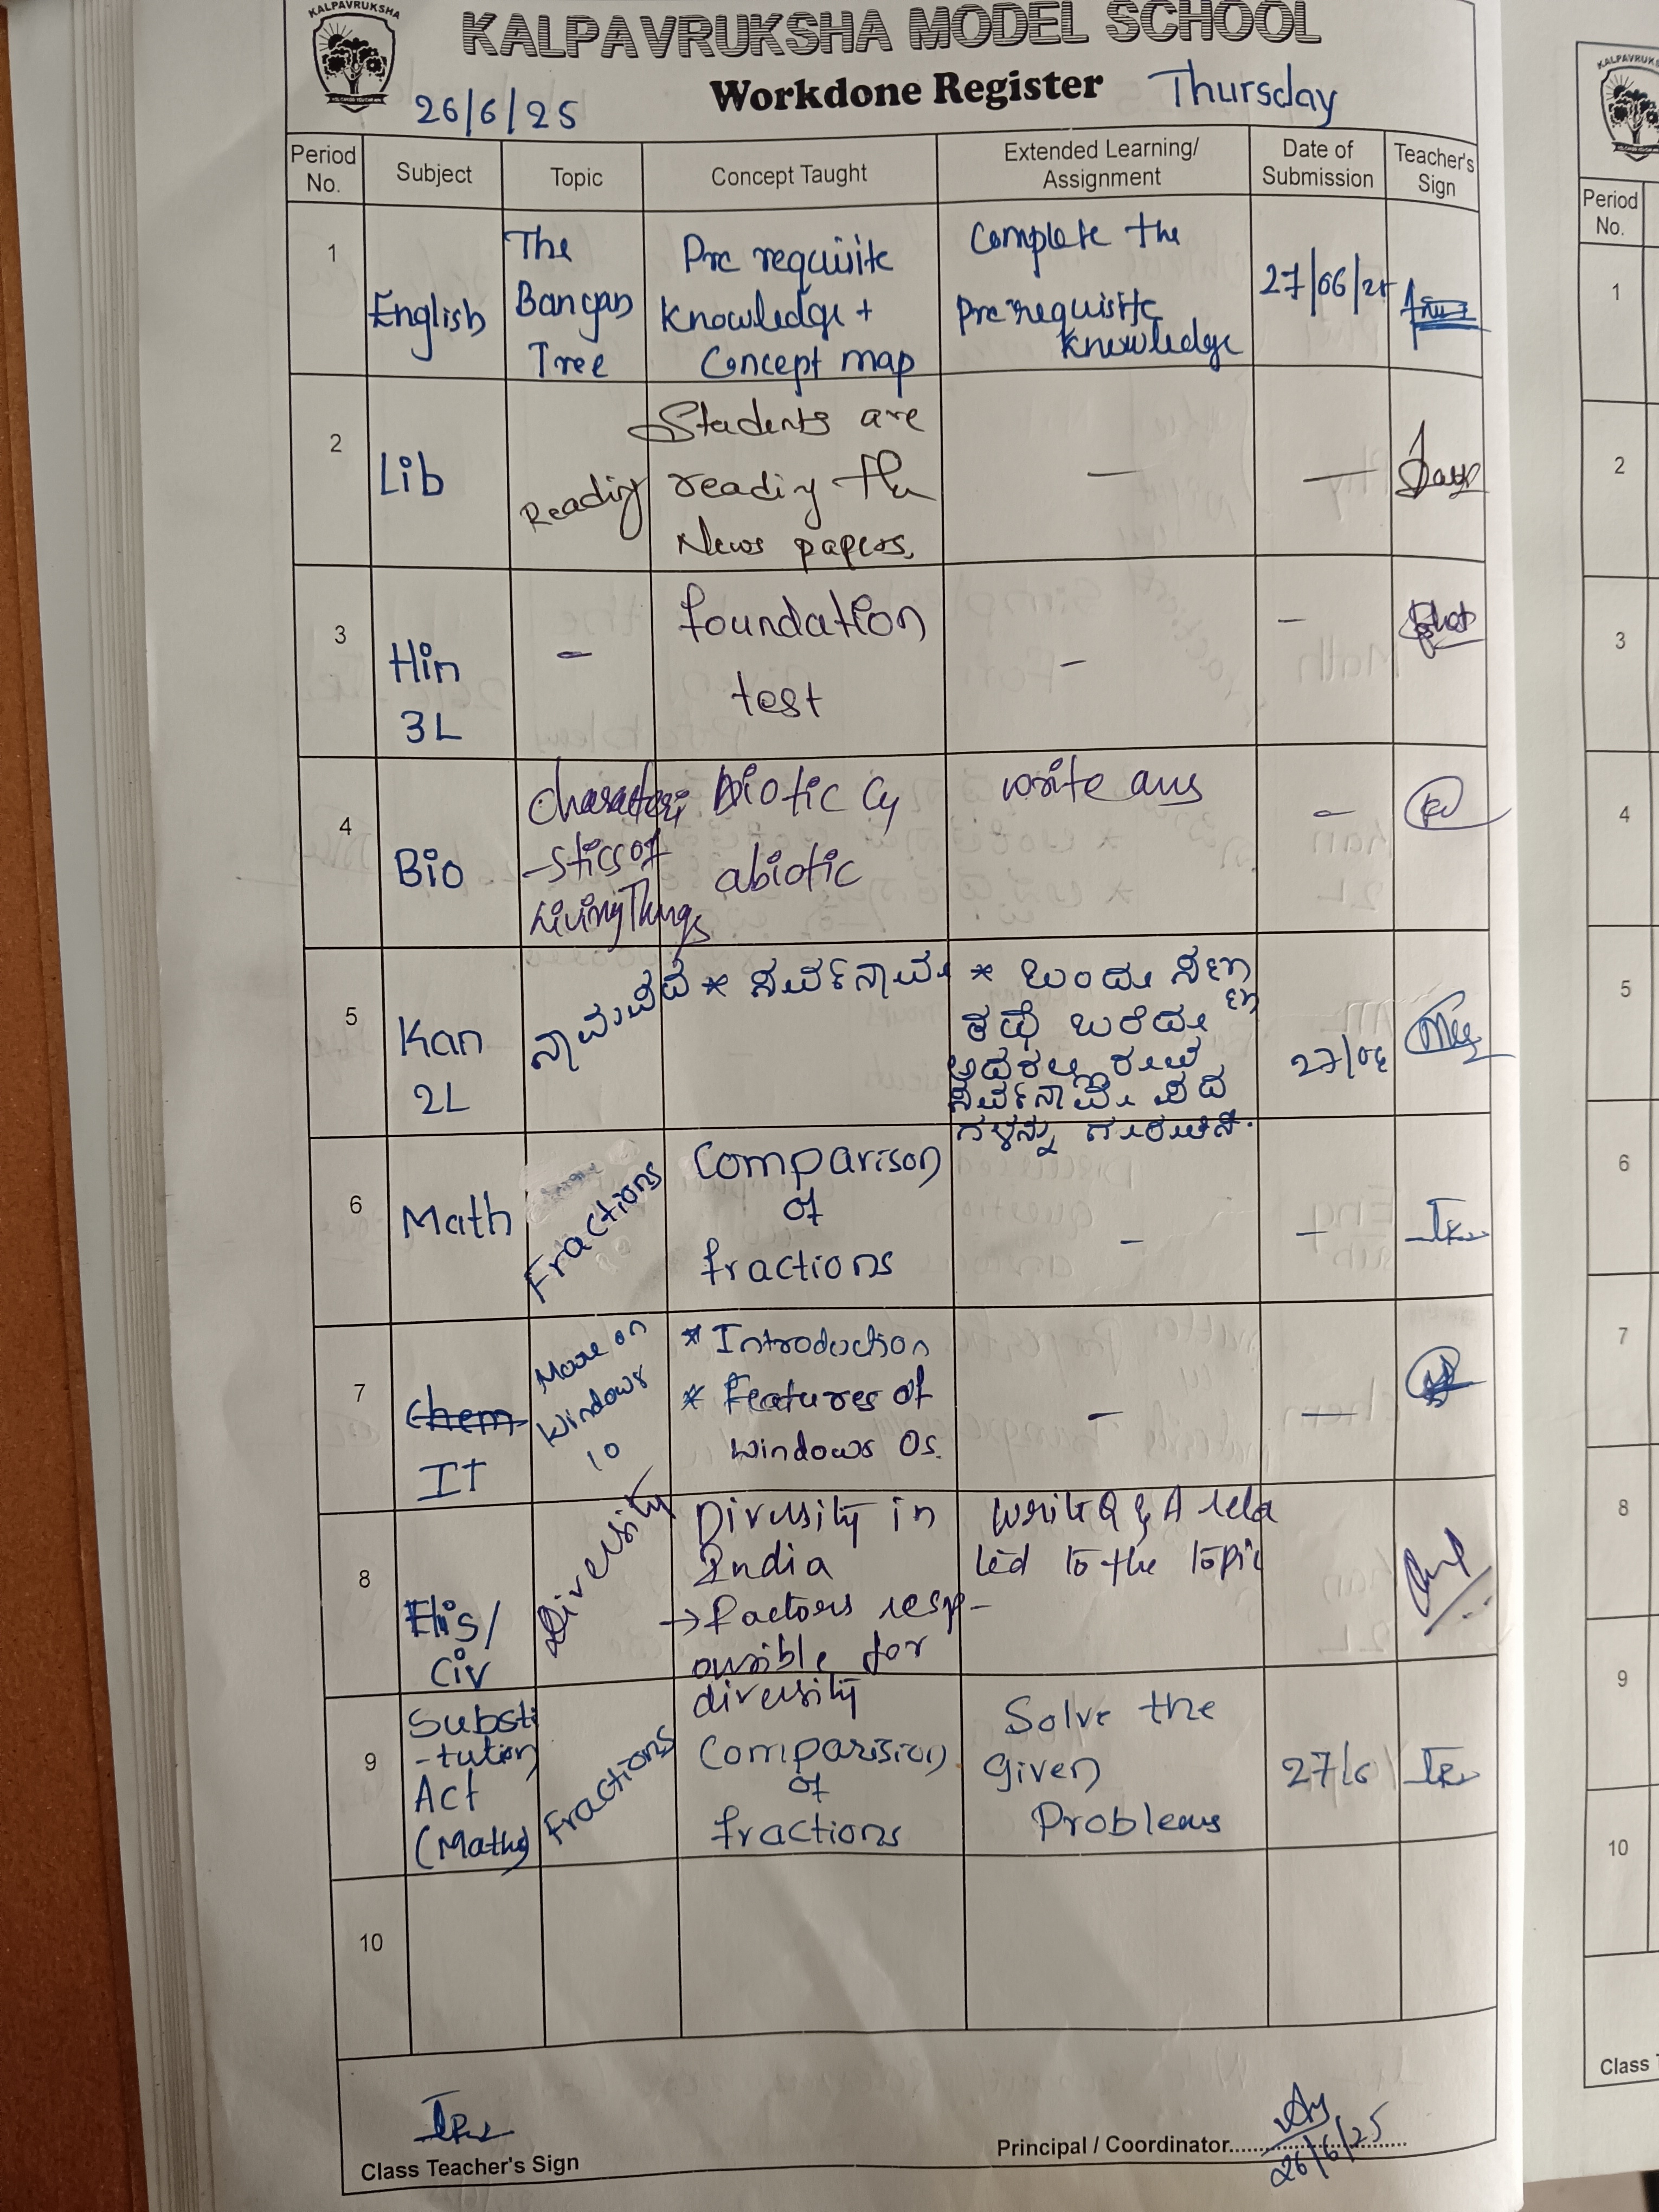 KALPAVRUKSHA
KALPAVRUKSHA MODEL SCHOOL
Workdone Register
26/6/25
Thursday
Period No.
Subject
Topic
Concept Taught
Extended Learning/
Assignment
Date of
Submission
Teacher's
Sign
1
English
The
Banyan
Tree
Pre requisite
knowledge +
Concept map
Complete the
Pre requisite
knowledge
27/06/25
2
Lib
Reading
Students are
reading the
News papers.
—
—
3
Hin
3L
-
foundation
test
-
-
4
Bio
Characteri
-stics of
Living Things
Biotic &
abiotic
write ans
-
5
Kan
2L
ನಾಮಪದ
* ಸರ್ವನಾಮ
* ಒಂದು ಸಣ್ಣ
ಕಥೆ ಬರೆದು
ಅದಕಲ್ಲಿರುವ
ಸರ್ವನಾಮ ಪದ
ಗಳನ್ನು ಗುರುತಿಸಿ.
27/06
6
Math
Fractions
Comparison
of
fractions
-
-
7
Chem
IT
More on
Windows
10
* Introduction
* Features of
windows Os.
-
—
8
His/
Civ
Diversity
Diversity in
India
→ factors resp-
onsible for
diversity
write Q & A rela
ted to the topic
9
Substi
-tution
Act
(Maths)
Fractions
Comparision
of
fractions
Solve the
given
Problems
27/6
10
Class Teacher's Sign
Principal / Coordinator
26/6/25
KALPAVRUKS
Period
No.
1
2
3
4
5
6
7
8
9
10
Class